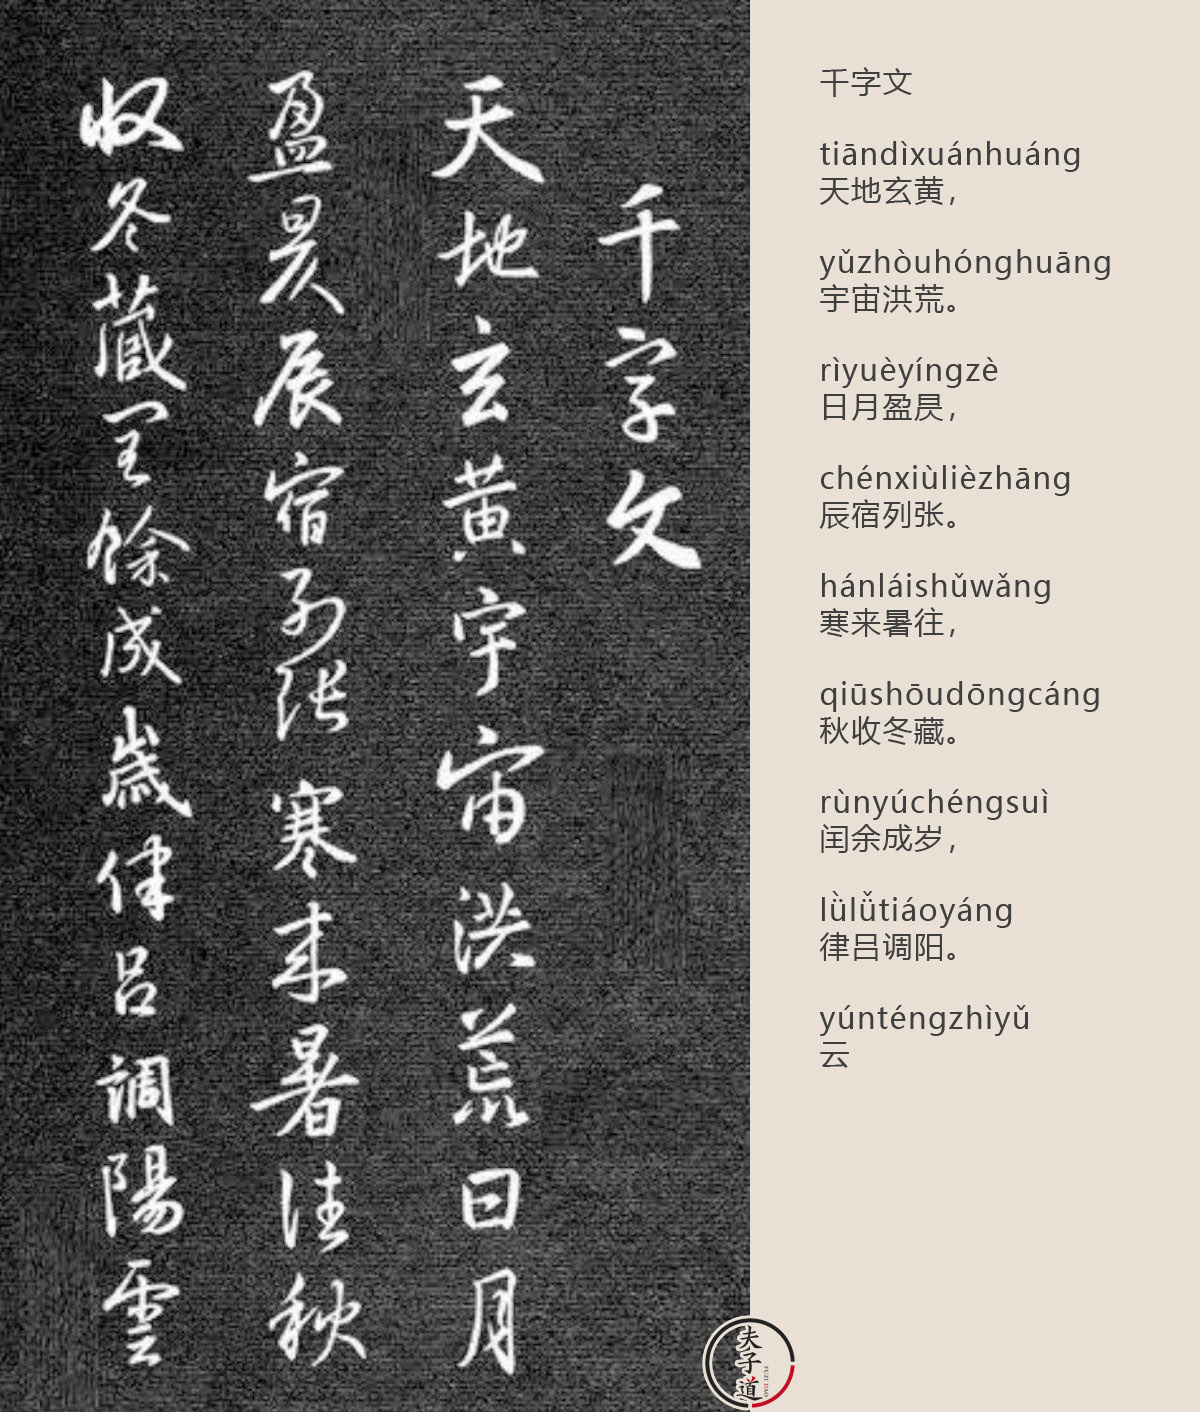 千字文
天地玄黄宇宙洪荒日月
盈昃辰宿列张寒来暑往秋
收冬藏闰餘成歲律吕調陽雲
千字文
tiāndìxuánhuáng
天地玄黄，
yǔzhòuhónghuāng
宇宙洪荒。
rìyuèyíngzè
日月盈昃，
chénxiùlièzhāng
辰宿列张。
hánláishǔwǎng
寒来暑往，
qiūshōudōngcáng
秋收冬藏。
rùnyúchéngsuì
闰余成岁，
lǜlǚtiáoyáng
律吕调阳。
yúnténgzhìyǔ
云
夫子道
FUZI DAO